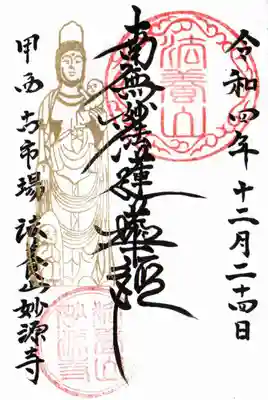 令和四年 十二月二十四日
法善山
南無妙法蓮華経
甲西 古市場 法善山 妙源寺
法善山
妙源寺